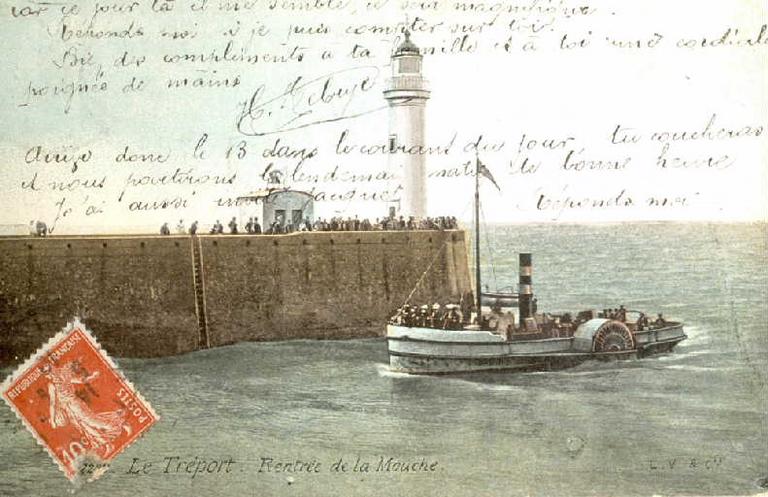 car ce jour là il me semble, ce sera magnifique.
Réponds moi si je puis compter sur toi.
Bien des compliments à ta famille et à toi une cordiale
poignée de mains
Arrive donc le 13 dans le courant du jour, tu coucheras
et nous partirons le lendemain matin de bonne heure
J'ai aussi invité Jacquet Réponds moi
RÉPUBLIQUE FRANÇAISE
POSTES
10c
Le Tréport. Rentrée de la Mouche.
L.V. & Cie